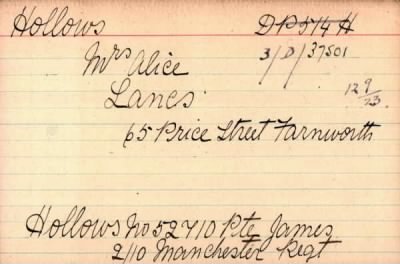 Hollows DP514 H
Mrs Alice 3/D/37501
Lancs 12 9/23
65 Price Street Farnworth
Hollows No 52710 Pte James
2/10 Manchester Regt